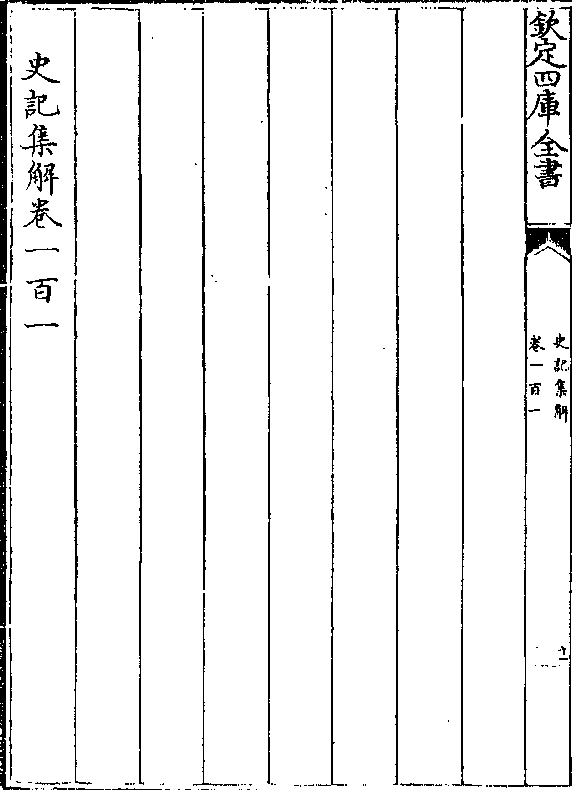 欽定四庫全書
史記集解
卷一百一
十一
史記集解卷一百一